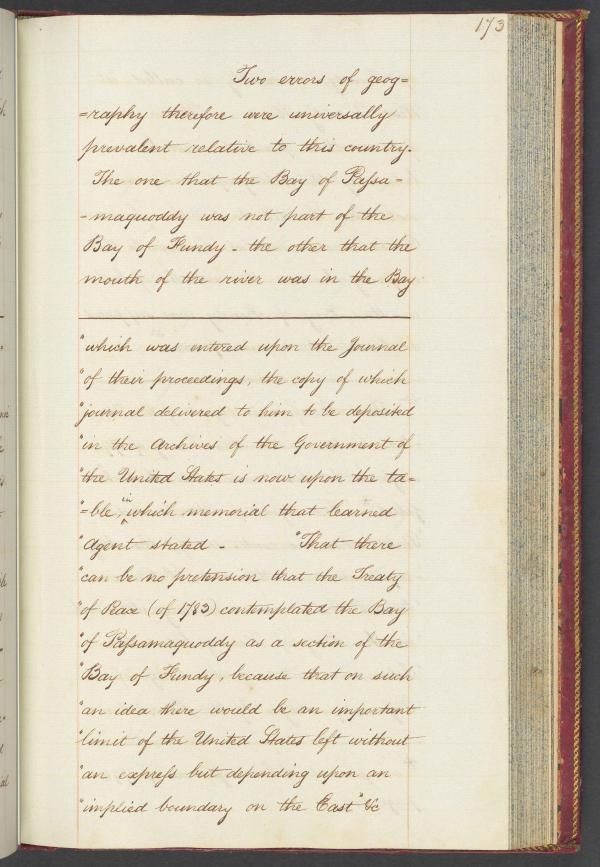 173
Two errors of geog=
=raphy therefore were universally
prevalent relative to this country.
The one that the Bay of Paſsa=
-maquoddy was not part of the
Bay of Fundy - the other that the
mouth of the river was in the Bay
"which was entered upon the Journal
"of their proceedings, the copy of which
"journal delivered to him to be deposited
"in the Archives of the Government of
"the United States is now upon the ta=
"=ble, in which memorial that learned
"Agent stated - "That there
"can be no pretension that the Treaty
"of Peace (of 1783) contemplated the Bay
"of Paſsamaquoddy as a section of the
"Bay of Fundy, because that on such
"an idea there would be an important
"limit of the United States left without
"an expreſs but depending upon an
"implied boundary on the East" &c